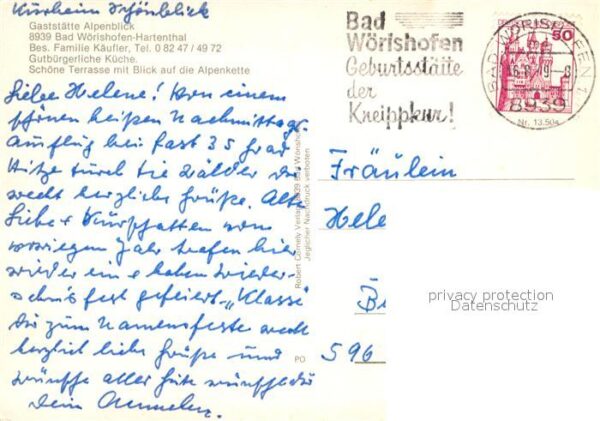 Kurheim Schönblick
Gaststätte Alpenblick
8939 Bad Wörishofen-Hartenthal
Bes. Familie Käufler, Tel. 0 82 47 / 49 72
Gutbürgerliche Küche.
Schöne Terrasse mit Blick auf die Alpenkette
Liebe Helene! Von einem
schönen heißen Nachmittags
ausflug bei fast 35 Grad
Hitze durch die Wälder
recht herzliche Grüße. Alte
Liebe + Kurschatten vom
vorigen Jahr trafen hier
wieder ein + haben Wieder-
gefeiert. "Klasse"
Dir zum Namensfeste recht
herzlich liebe Grüße und
wünsche alles Gute
Dein
Robert Cornely Verlag, 8939 Bad Wörish
Jeglicher Nachdruck verboten
PO
Bad
Wörishofen
Geburtsstätte
der
Kneippkur!
BAD WÖRISHOFEN 1
8939
50
Nr. 13.504
Fräulein
Hele
B
596
privacy protection
Datenschutz